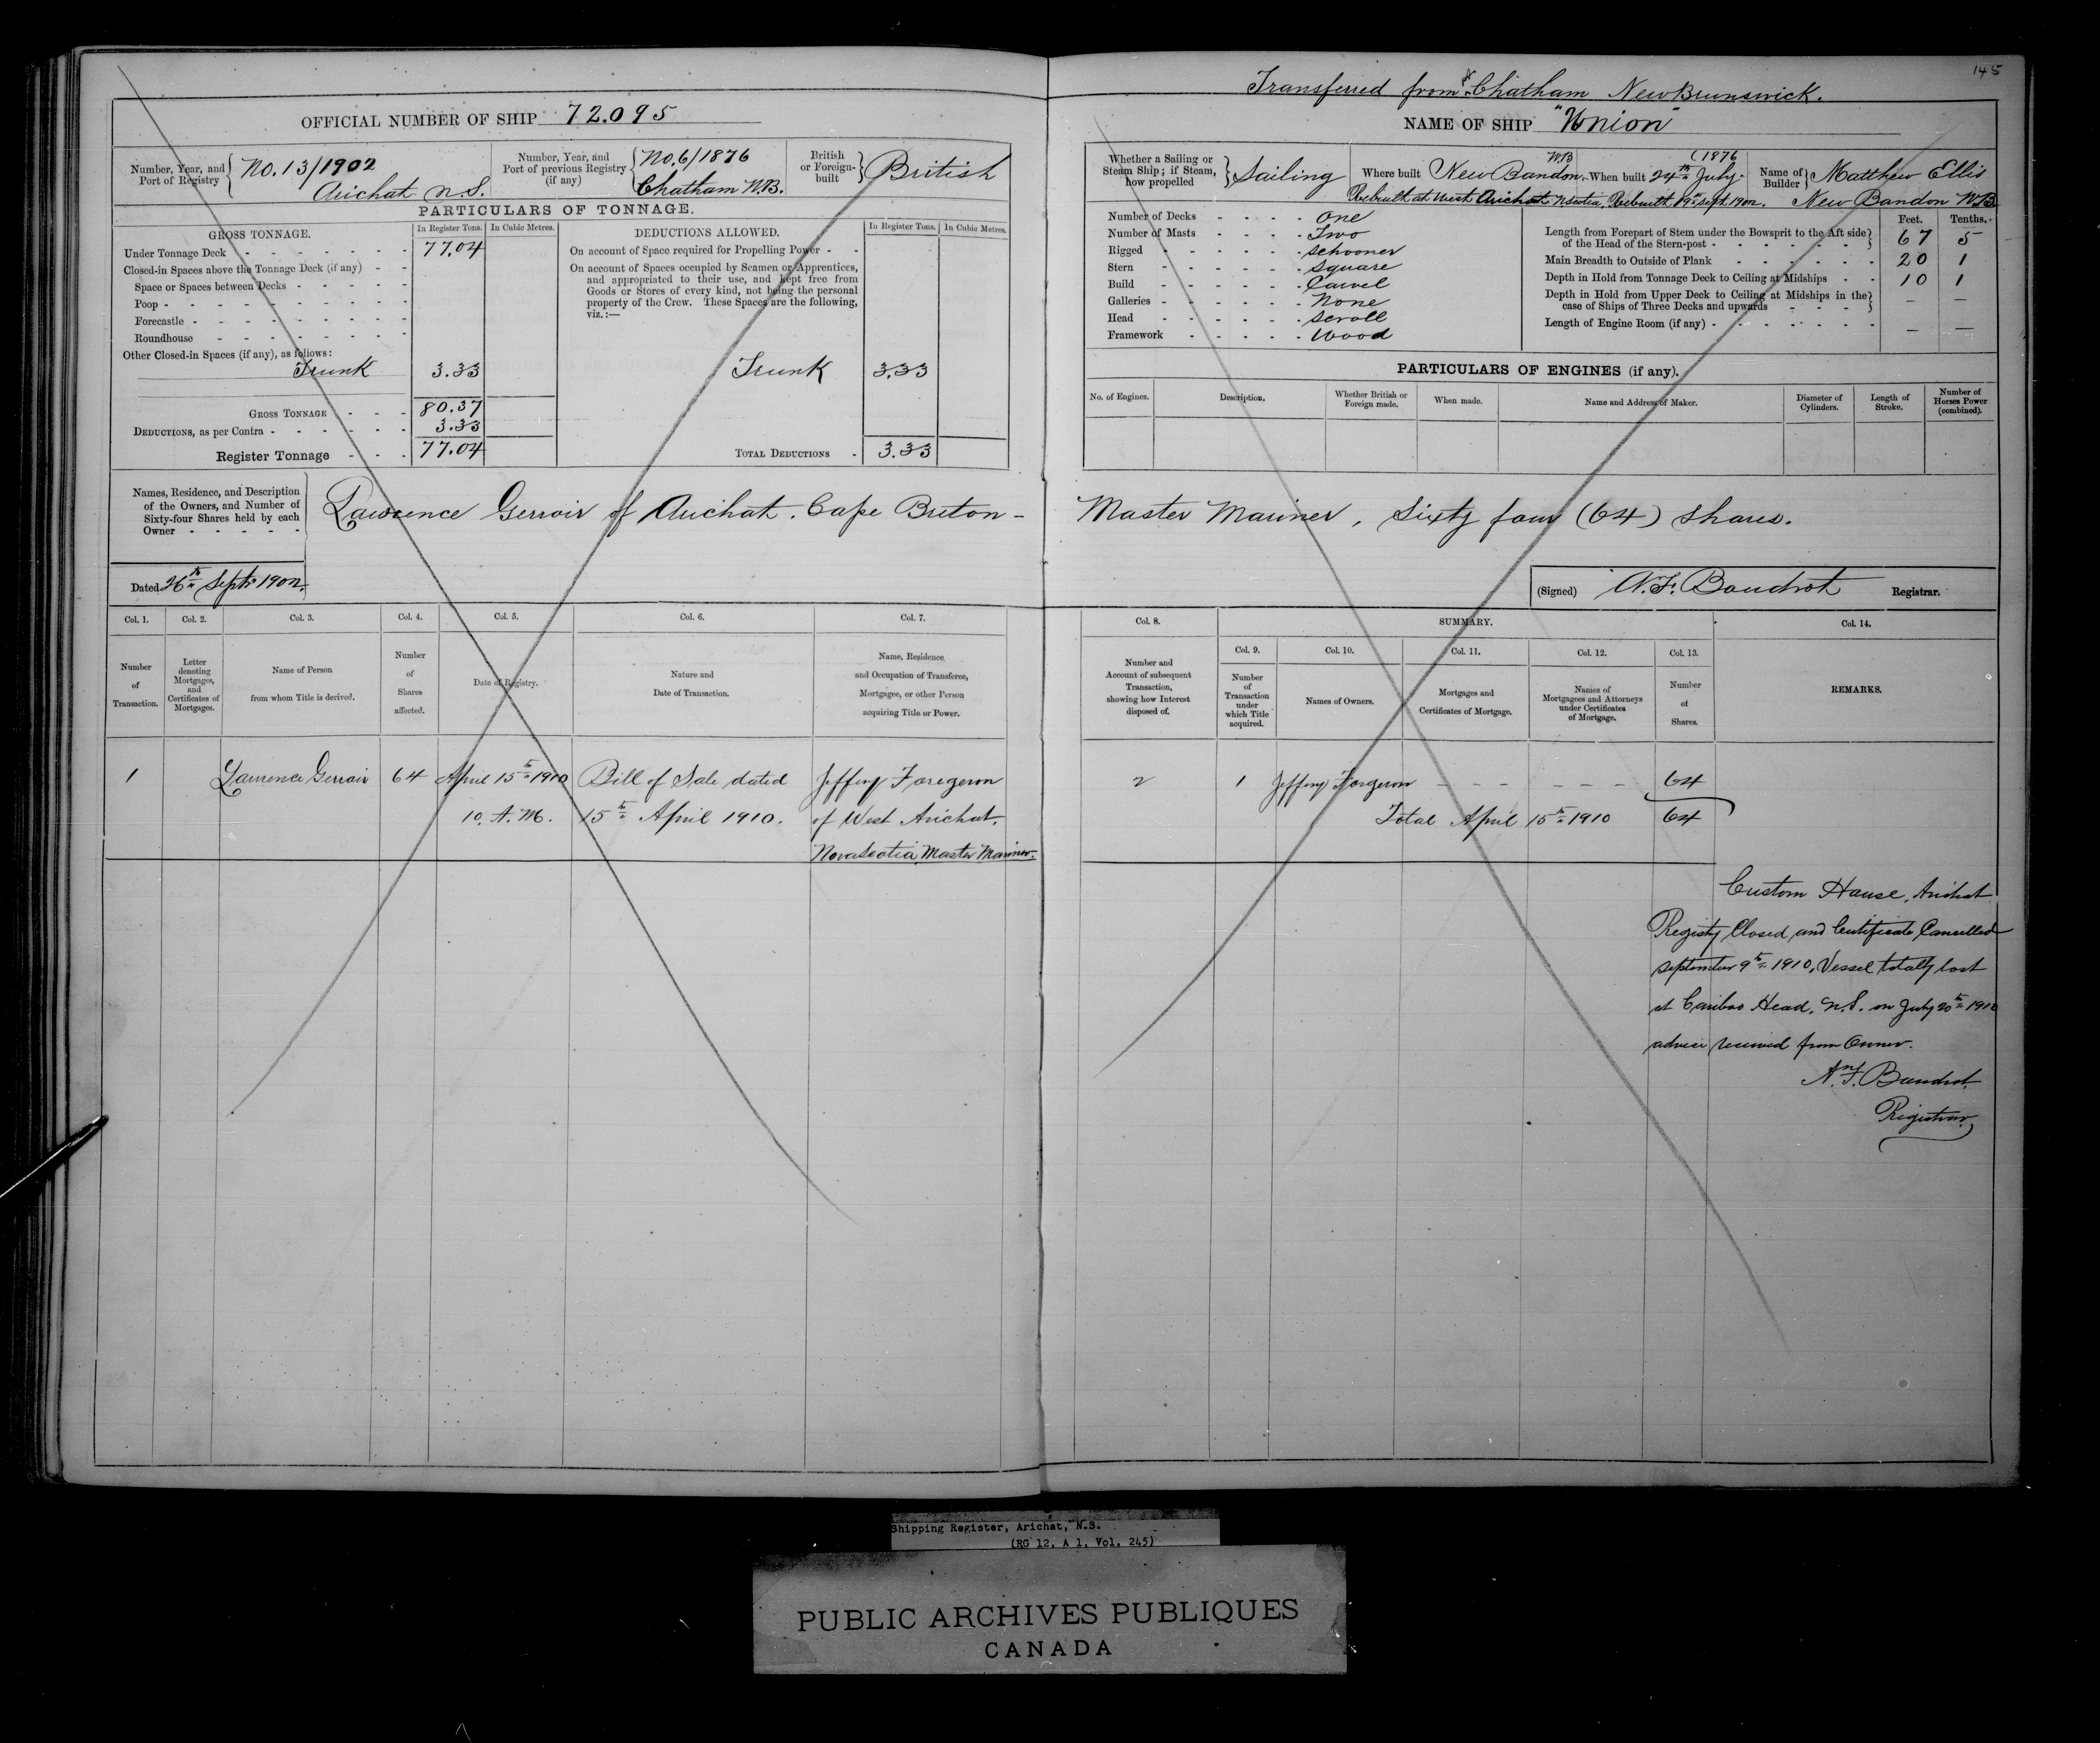 145
Transferred from Port Chatham New Brunswick.
OFFICIAL NUMBER OF SHIP 72.095
NAME OF SHIP "Union"
Number, Year, and Port of Registry No. 13/1902 Arichat N.S.
Number, Year, and Port of previous Registry (if any) No. 6/1876 Chatham N.B.
British or Foreign-built British
Whether a Sailing or Steam Ship; if Steam, how propelled Sailing
Where built New Bandon N.B
When built 24th July 1876
Name of Builder Matthew Ellis New Bandon N.B
Rebuilt at West Arichat N Scotia, Rebuilt 19th Sept. 1902.
PARTICULARS OF TONNAGE.
GROSS TONNAGE. In Register Tons. In Cubic Metres.
Under Tonnage Deck 77.04
Closed-in Spaces above the Tonnage Deck (if any)
Space or Spaces between Decks
Poop
Forecastle
Roundhouse
Other Closed-in Spaces (if any), as follows:
Trunk 3.33
GROSS TONNAGE 80.37
DEDUCTIONS, as per Contra 3.33
Register Tonnage 77.04
DEDUCTIONS ALLOWED. In Register Tons. In Cubic Metres.
On account of Space required for Propelling Power
On account of Spaces occupied by Seamen or Apprentices,
and appropriated to their use, and kept free from
Goods or Stores of every kind, not being the personal
property of the Crew. These Spaces are the following,
viz.:—
Trunk 3.33
TOTAL DEDUCTIONS 3.33
Number of Decks One
Number of Masts Two
Rigged Schooner
Stern Square
Build Carvel
Galleries None
Head Scroll
Framework Wood
Feet. Tenths.
Length from Forepart of Stem under the Bowsprit to the Aft side of the Head of the Stern-post 67 5
Main Breadth to Outside of Plank 20 1
Depth in Hold from Tonnage Deck to Ceiling at Midships 10 1
Depth in Hold from Upper Deck to Ceiling at Midships in the case of Ships of Three Decks and upwards — —
Length of Engine Room (if any) — —
PARTICULARS OF ENGINES (if any).
No. of Engines. Description. Whether British or Foreign made. When made. Name and Address of Maker. Diameter of Cylinders. Length of Stroke. Number of Horses Power (combined).
Names, Residence, and Description
of the Owners, and Number of
Sixty-four Shares held by each
Owner
Lawrence Gerroir of Arichat. Cape Breton - Master Mariner, Sixty four (64) Shares.
Dated 26th Septr 1902.
(Signed) N. F. Boudrot Registrar.
Col. 1. Col. 2. Col. 3. Col. 4. Col. 5. Col. 6. Col. 7. Col. 8. SUMMARY. Col. 14.
Col. 9. Col. 10. Col. 11. Col. 12. Col. 13.
Number of Transaction.
Letter denoting Mortgages, and Certificates of Mortgages.
Name of Person from whom Title is derived.
Number of Shares affected.
Date of Registry.
Nature and Date of Transaction.
Name, Residence and Occupation of Transferee, Mortgagee, or other Person acquiring Title or Power.
Number and Account of subsequent Transaction, showing how Interest disposed of.
Number of Transaction under which Title acquired.
Names of Owners.
Mortgages and Certificates of Mortgage.
Names of Mortgagees and Attorneys under Certificates of Mortgage.
Number of Shares.
REMARKS.
1 Lawrence Gerroir 64 April 15th 1910 Bill of Sale dated Jeffery Foregeron 2 1 Jeffery Forgeron - - - - - 64
10. A.M. 15th April 1910. of West Arichat, Total April 15th 1910 64
Nova Scotia, Master Mariner.
Custom House, Arichat
Registry Closed, and Certificate Cancelled
September 9th 1910, Vessel totally lost
at Cariboo Head, N.S. on July 20th 1910
advice received from Owner.
N. F. Boudrot
Registrar
Shipping Register, Arichat, N.S.
(RG 12, A 1, Vol. 245)
PUBLIC ARCHIVES PUBLIQUES
CANADA